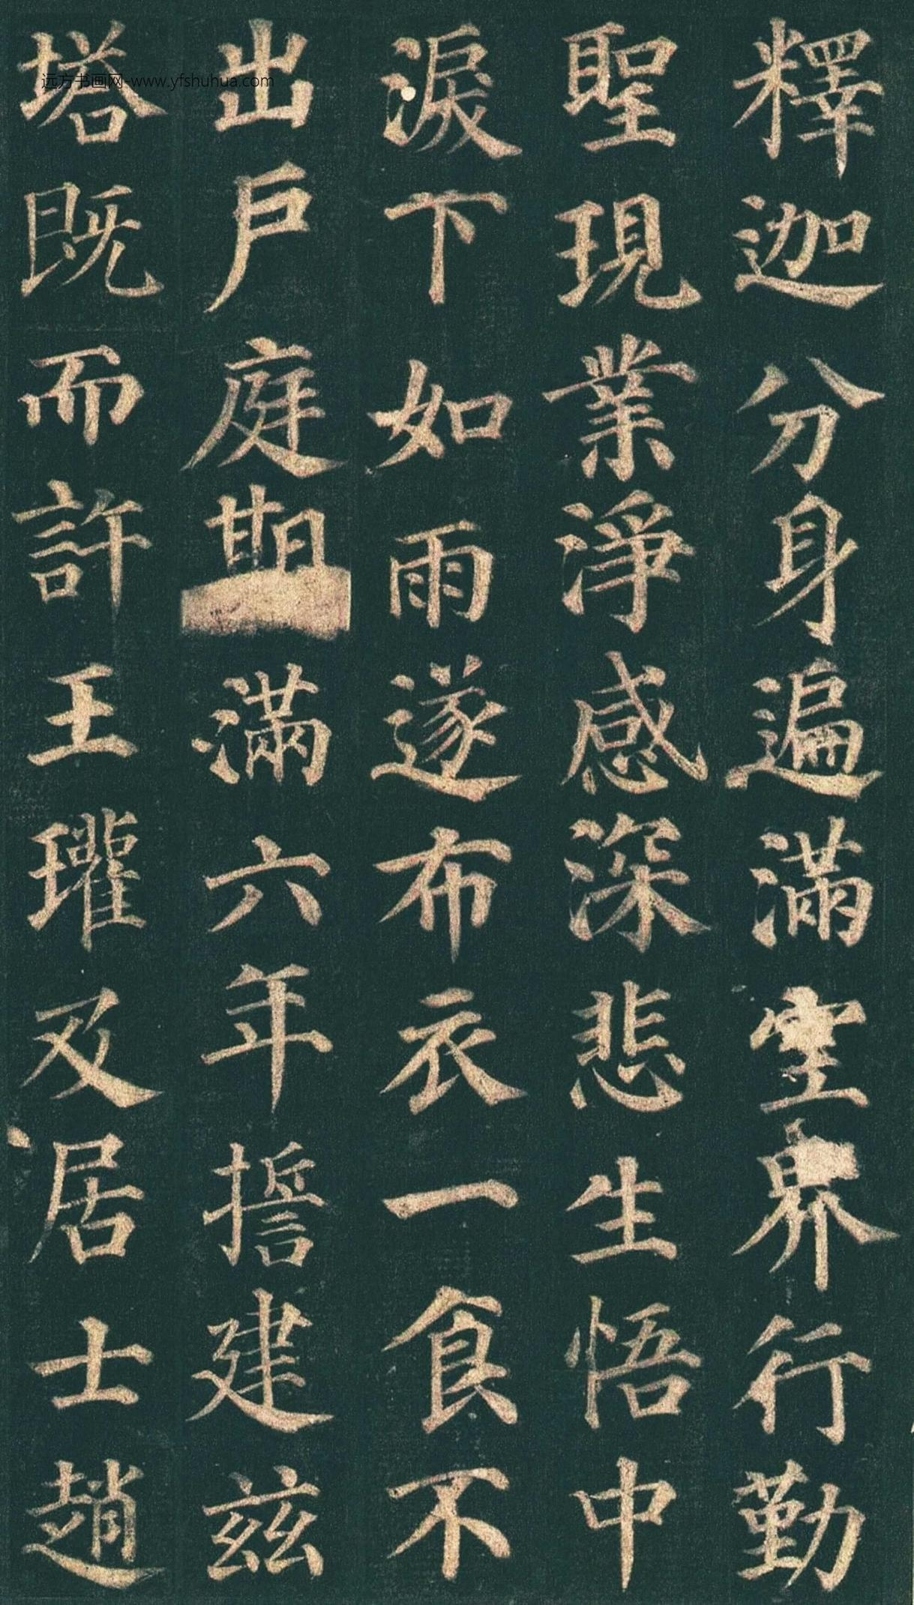 釋迦分身遍滿空界行勤
聖現業淨感深悲生悟中
淚下如雨遂布衣一食不
出戶庭期滿六年誓建茲
塔既而許王瓘及居士趙
远方书画网-www.yfshuhua.com